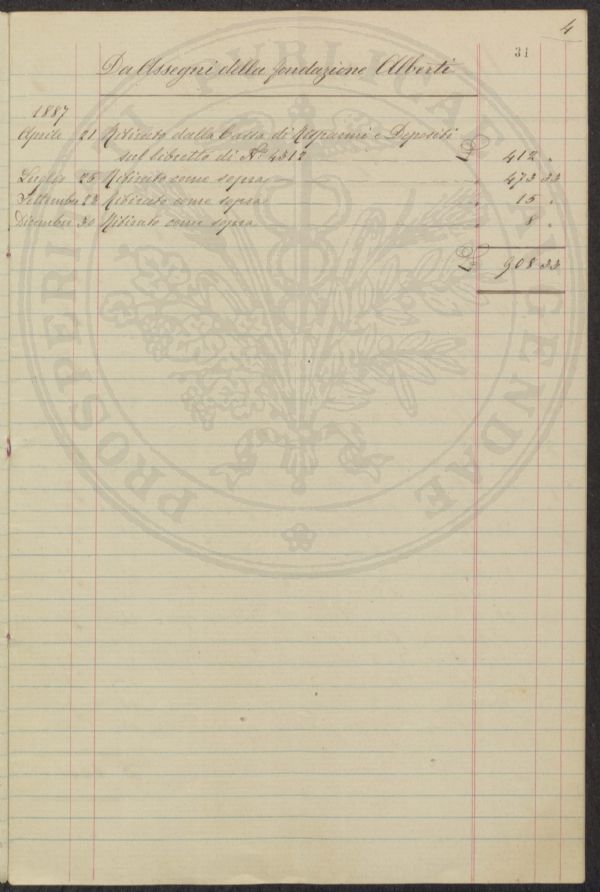 4
31
Da Assegni della fondazione Alberti
1887
Aprile 21 Ritirato dalla Cassa di Risparmi e Depositi
sul libretto di No. 4312 L 412 "
Luglio 25 Ritirato come sopra " 473 33
Settembre 23 Ritirato come sopra " 15 "
Dicembre 30 Ritirato come sopra " 8 "
L 908 33
PROSPERITATI PUBLICAE AUGENDAE